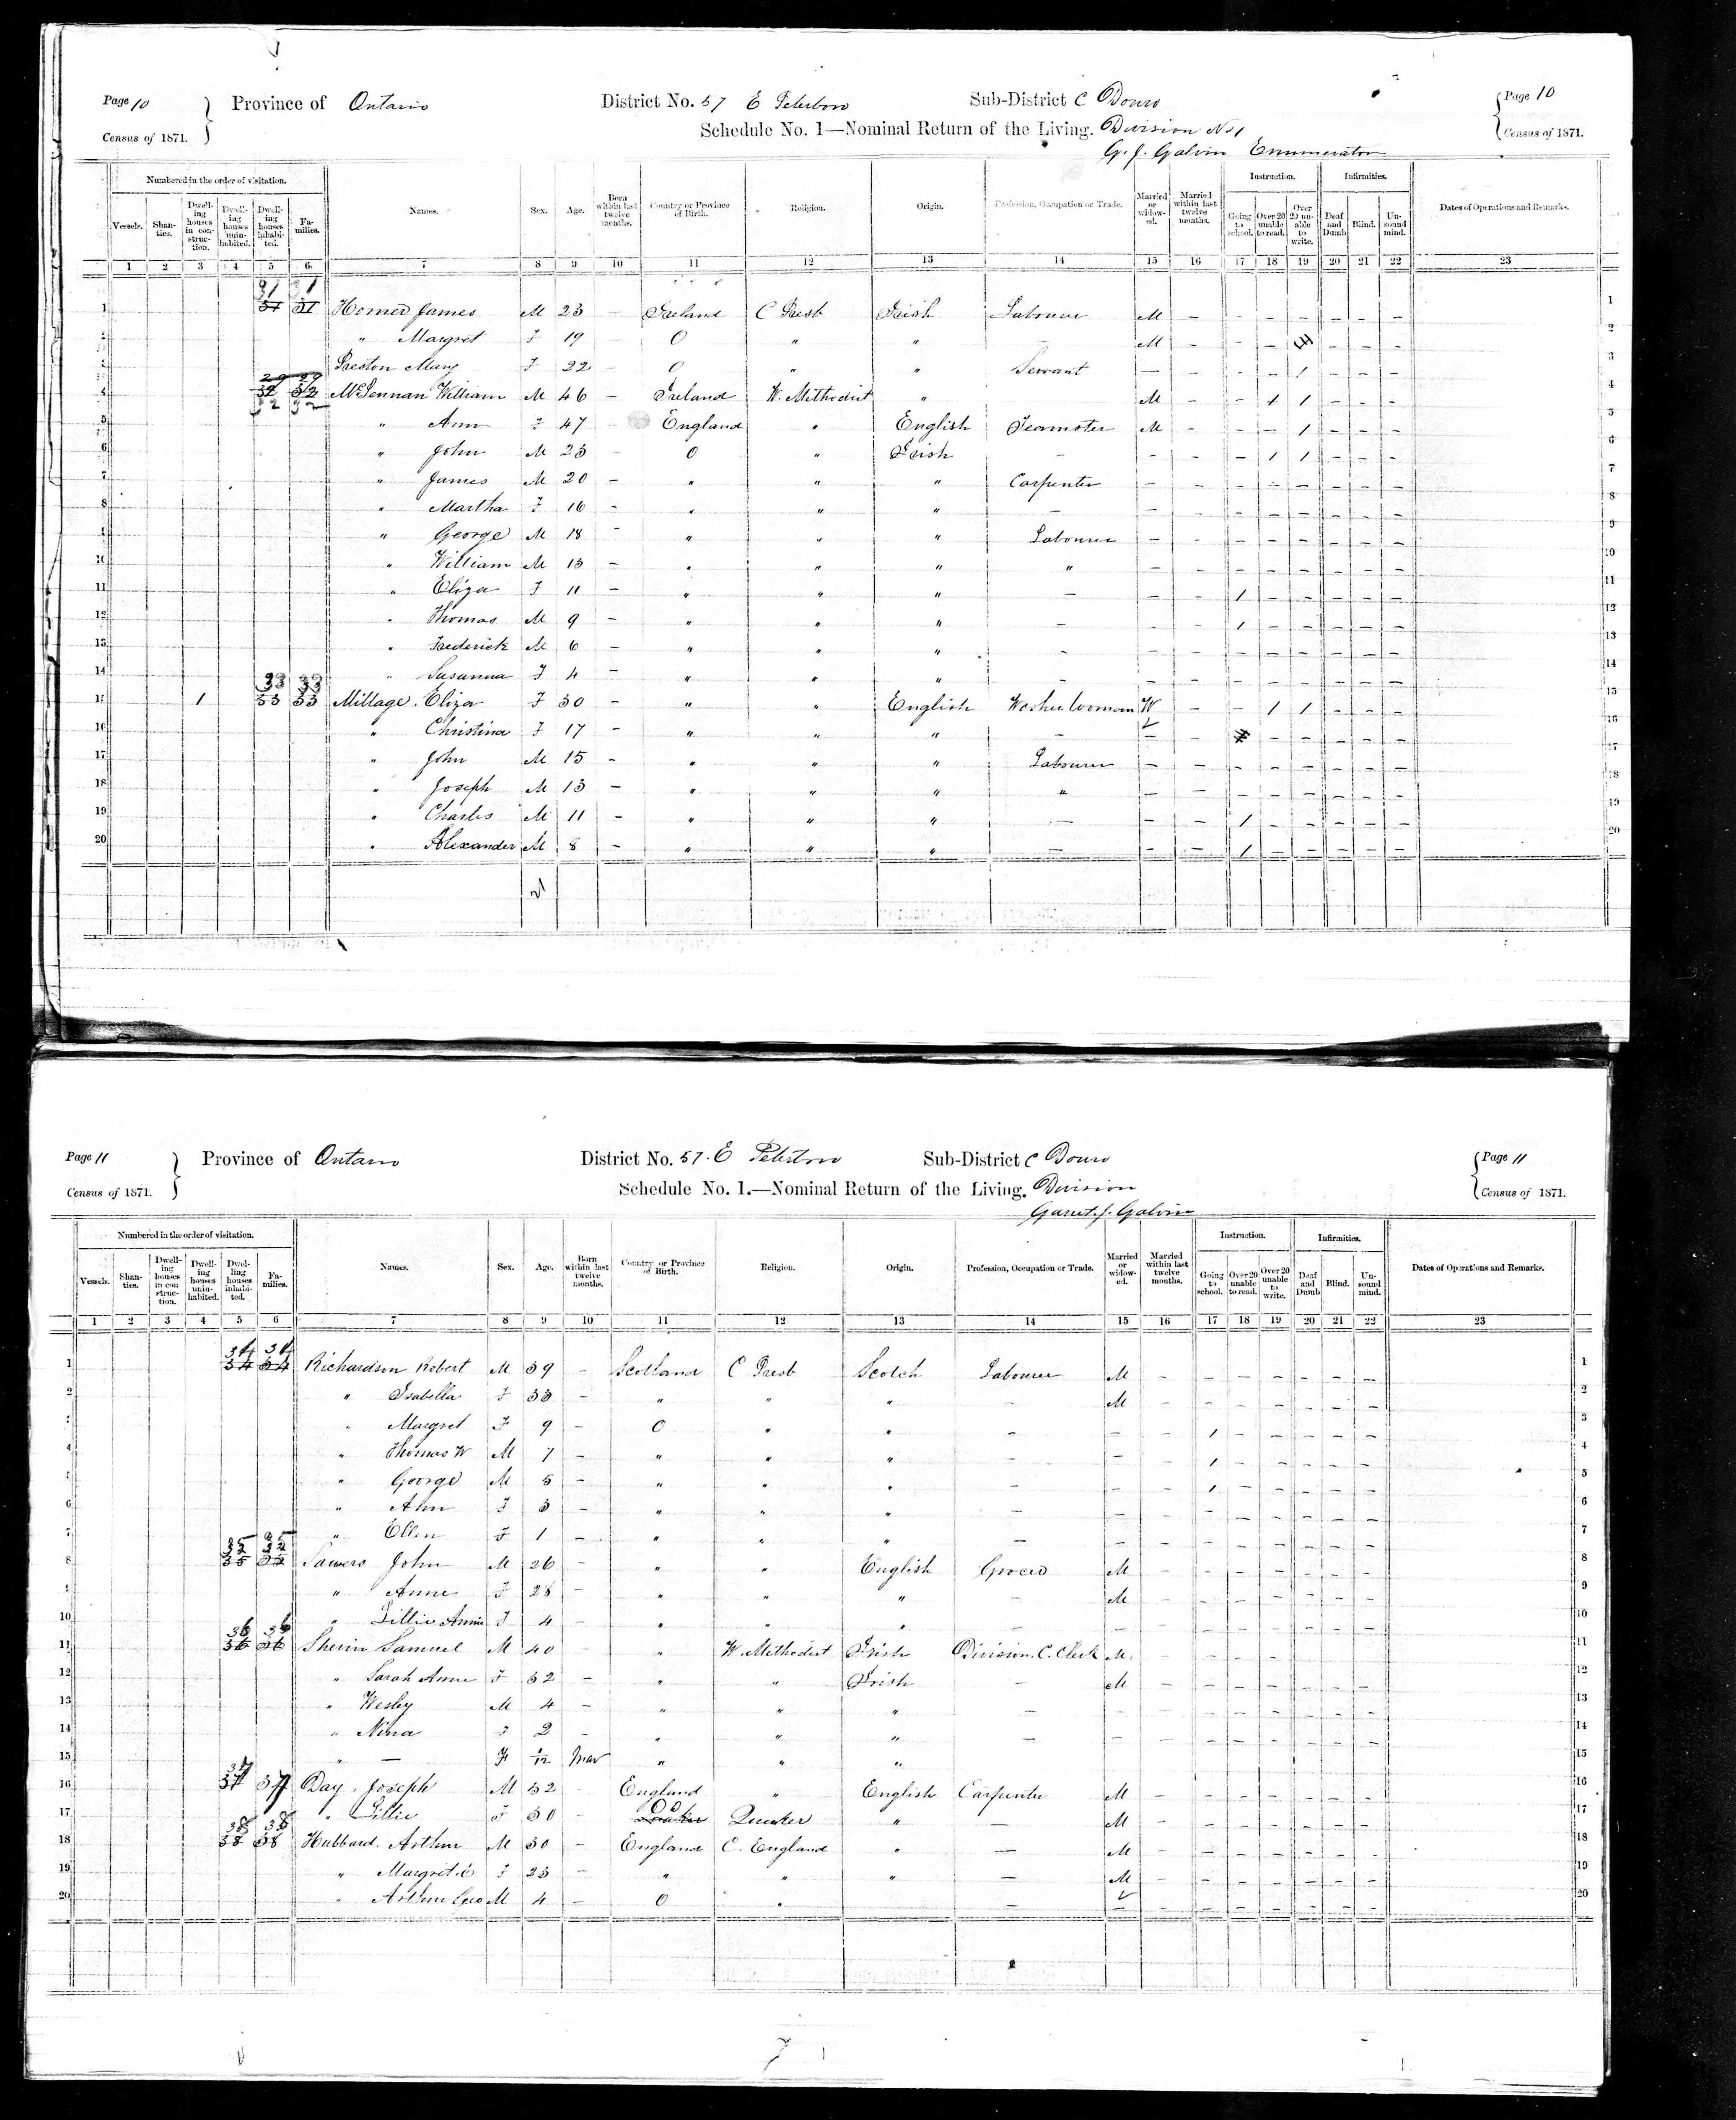 Page 10 Province of Ontario District No. 57 E Peterboro Sub-District C Douro Page 10
Census of 1871. Schedule No. 1—Nominal Return of the Living. Division No 1 Census of 1871.
G. J. Galvin Enumerator
Numbered in the order of visitation. Instruction. Infirmities.
Vessels. Shanties. Dwelling houses in construction. Dwelling houses uninhabited. Dwelling houses inhabited. Families. Names. Sex. Age. Born within last twelve months. Country or Province of Birth. Religion. Origin. Profession, Occupation or Trade. Married or widowed. Married within last twelve months. Going to school. Over 20 unable to read. Over 20 unable to write. Deaf and Dumb Blind. Unsound mind. Dates of Operations and Remarks.
1 2 3 4 5 6 7 8 9 10 11 12 13 14 15 16 17 18 19 20 21 22 23
31 31
1 31 31 Horner James M 23 – Ireland C Presb Irish Labourer M – – – – – – – 1
2 " Margret F 19 O " " M – – – – – – 2
3 Preston Mary F 22 O " " Servant – – – – 1 – – – 3
29 29
4 32 32 McLennan William M 46 – Ireland W. Methodist " M – – 1 1 – – – 4
32 32
5 " Ann F 47 – England " English Teamster M – – – 1 – – – 5
6 " John M 23 O " Irish – – – – 1 1 – – – 6
7 " James M 20 – " " " Carpenter – – – – – – – – 7
8 " Martha F 16 – " " " – – – – – – – – – 8
9 " George M 18 – " " " Labourer – – – – – – – – 9
10 " William M 13 – " " " " – – – – – – – – 10
11 " Eliza F 11 – " " " – – – 1 – – – – – 11
12 " Thomas M 9 – " " " – – – 1 – – – – – 12
13 " Frederick M 6 – " " " – – – – – – – – – 13
14 " Susanna F 4 – " " " – – – – – – – – – 14
33 33
15 1 33 33 Millage. Eliza F 30 – " " English Washer Woman W – – 1 1 – – – 15
16 " Christina F 17 – " " " – – – – – – – – 16
17 " John M 15 – " " " Labourer – – – – – – – – 17
18 " Joseph M 13 – " " " " – – – – – – – – 18
19 " Charles M 11 – " " " – – – 1 – – – – – 19
20 " Alexander M 8 – " " " – – – 1 – – – – – 20
Page 11 Province of Ontario District No. 57. E Peterboro Sub-District C Douro Page 11
Census of 1871. Schedule No. 1.—Nominal Return of the Living. Division Census of 1871.
Garret. J. Galvin
Numbered in the order of visitation. Instruction. Infirmities.
Vessels. Shanties. Dwelling houses in construction. Dwelling houses uninhabited. Dwelling houses inhabited. Families. Names. Sex. Age. Born within last twelve months. Country or Province of Birth. Religion. Origin. Profession, Occupation or Trade. Married or widowed. Married within last twelve months. Going to school. Over 20 unable to read. Over 20 unable to write. Deaf and Dumb Blind. Unsound mind. Dates of Operations and Remarks.
1 2 3 4 5 6 7 8 9 10 11 12 13 14 15 16 17 18 19 20 21 22 23
34 34
1 34 34 Richardson Robert M 39 – Scotland C Presb Scotch Labourer M – – – – – – – 1
2 " Isabella F 33 – " " " – M – – – – – – – 2
3 " Margret F 9 – O " " – – – 1 – – – – – 3
4 " Thomas W M 7 – " " " – – – 1 – – – – – 4
5 " George M 5 – " " " – – – 1 – – – – – 5
6 " Ann F 3 – " " " – – – – – – – – – 6
7 " Ellen F 1 – " " " – – – – – – – – – 7
35 35
8 35 35 Sawers John M 26 – " " English Grocer M – – – – – – – 8
9 " Anne F 28 – " " " – M – – – – – – – 9
10 " Lillie Annie F 4 – " " " – – – – – – – – – 10
36 36
11 36 36 Sherin Samuel M 40 – " W. Methodist Irish Division. C. Clerk M. – – – – – – – 11
12 " Sarah Anne F 32 – " " Irish – M – – – – – – – 12
13 " Wesley M 4 – " " " – – – – – – – – – 13
14 " Nina F 2 – " " " – – – – – – – – – 14
15 " — F 1/12 Mar " " " 15
37
16 37 37 Day. Joseph M 32 – England " English Carpenter M – – – – – – – 16
17 " Lillie F 30 – Quaker " – M – – – – – – – 17
38 38
18 38 38 Hubbard. Arthur M 30 – England C. England " – M – – – – – – – 18
19 " Margret E F 23 – " " " – M – – – – – – – 19
20 " Arthur Geo M 4 – O " – – – – – – – – – 20